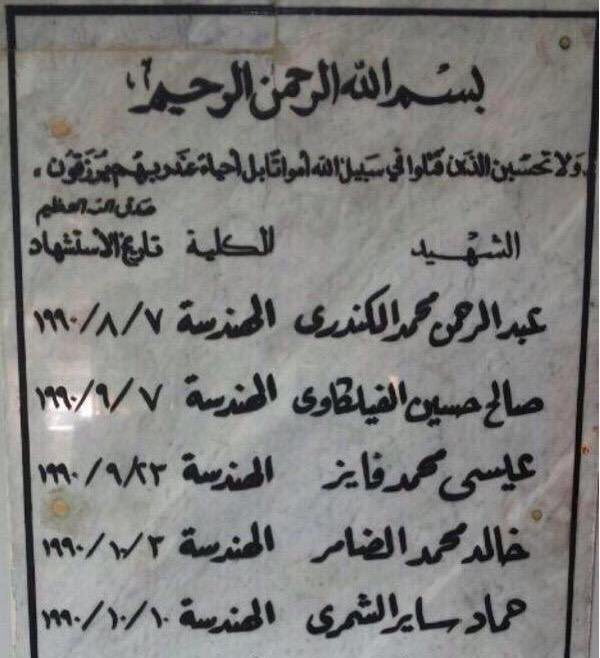 بسم الله الرحمن الرحيم
ولا تحسبن الذين قتلوا في سبيل الله أمواتا بل أحياء عند ربهم يرزقون
صدق الله العظيم
الشهيد الكلية تاريخ الاستشهاد
عبد الرحمن محمد الكندرى الهندسة ١٩٩٠/٨/٧
صالح حسين الفيلكاوى الهندسة ١٩٩٠/٩/٧
عيسى محمد فايز الهندسة ١٩٩٠/٩/٢٣
خالد محمد الضامر الهندسة ١٩٩٠/١٠/٣
حماد ساير الشمرى الهندسة ١٩٩٠/١٠/١٠